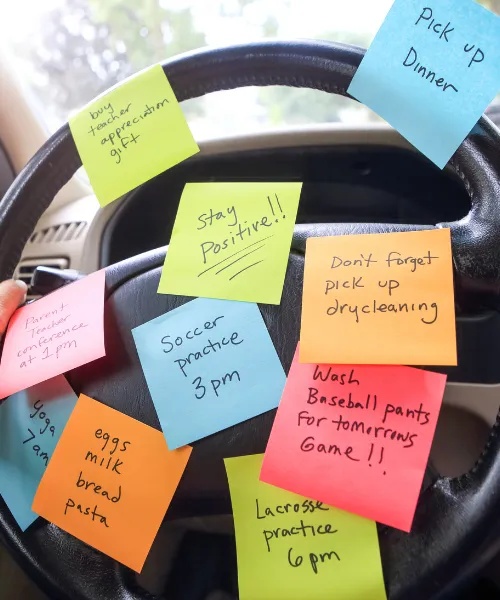 Pick up
Dinner
buy
teacher
appreciation
gift
Stay
Positive!!
Don't forget
pick up
drycleaning
Parent
Teacher
conference
at 1pm
Soccer
practice
3pm
Wash
Baseball pants
for tomorrows
Game!!
yoga
7am
eggs
milk
bread
pasta
Lacrosse
practice
6pm